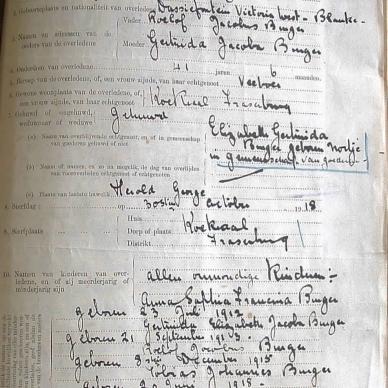 Geboorteplaats en nationaliteit van overledene Dassiefontein Victoria West - Blanke
Vader Roelof Jacobus Burger
3. Namen en adressen van de ouders van overledene
Moeder Gertruida Jacoba Burger
4. Ouderdom van overledene 41 jaren 6 maanden.
5. Beroep van de overledene, of, een vrouw zijnde, van haar echtgenoot Veeboer
6. Gewone woonplaats van de overledene of, een vrouw zijnde, van haar echtgenoot Fraserburg
7. Gehuwd of ongehuwd, weduwnaar of weduwe Gehuwd
(a) Naam van overblijvende echtgenoot, en of in gemeenschap van goederen gehuwd of niet
Elizabeth Gertruida
Burger geboren
in gemeenschap van goederen
(b) Namen of namen, en zo na mogelik, de dag van overlijden van vooroverleden echtgenoot of echtgenoten
(c) Plaats van laatste huwelik Herold George
8. Sterfdag: op 30sten October 1918
Huis
9. Sterfplaats Dorp of plaats
Distrikt Fraserburg
10. Namen van kinderen van overledene, en of zij meerderjarig of minderjarig zijn
allen onmondige Kinderen:-
Anna Sophia Francina Burger
geboren 23 Juli 1912
Gertruida Elizabeth Jacoba Burger
geboren 21 September 1913.
Roelof Burger
geboren 8 December 1915
Johannes Burger
geboren Juni 1918